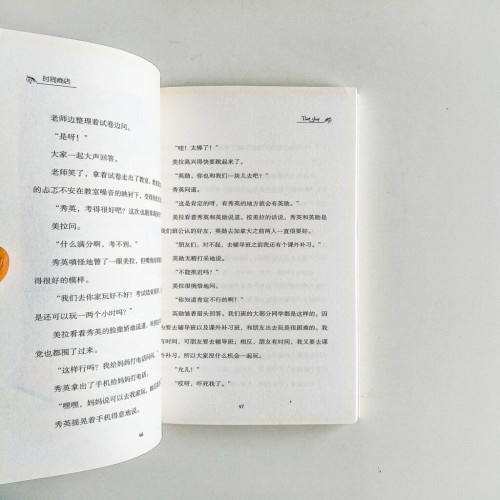 时间商店
老师边整理着试卷边问。
“是呀！”
大家一起大声回答。
老师笑了，拿着试卷走出了教室。
的忐忑不安在教室噪音的映衬下，
“秀英，考得很好吧？这次也
美拉问。
“什么满分啊，考不到。”
秀英嗔怪地瞥了一眼美拉，但嘴
得很好的模样。
“我们去你家玩好不好？考试结束
是还可以玩一两个小时吗？”
美拉看着秀英的脸撒娇地说道，
党也都围了过来。
“这样行吗？我给妈妈打电话问问。”
秀英拿出了手机给妈妈打电话。
“嘿嘿，妈妈说可以去我家玩，
秀英摇晃着手机得意地说。
66
“哇！太棒了！”
美拉高兴得快要跳起来了。
“英勋，你也和我们一块儿去吧？”
秀英问道。
“这是肯定的呀，有秀英的地方就会有英勋。”
美拉看着秀英和英勋说道。按美拉的话说，秀英和英勋是
我们班公认的好友，英勋去加拿大之前两人一直很要好。
“朋友们，对不起，去辅导班之前我还有个课外补习。”
英勋无精打采地说。
“不能推迟吗？”
美拉很惋惜地问。
“你知道肯定不行的啊！”
英勋皱着眉头回答。我们班的大部分同学都是这样的。因
为要去辅导班以及课外补习班，和朋友出去玩是很困难的。我
有时间，可朋友要去辅导班；相反，朋友有时间，我又要去课
外补习。所以大家没什么机会一起玩。
“允儿！”
“哎呀，吓死我了。”
67